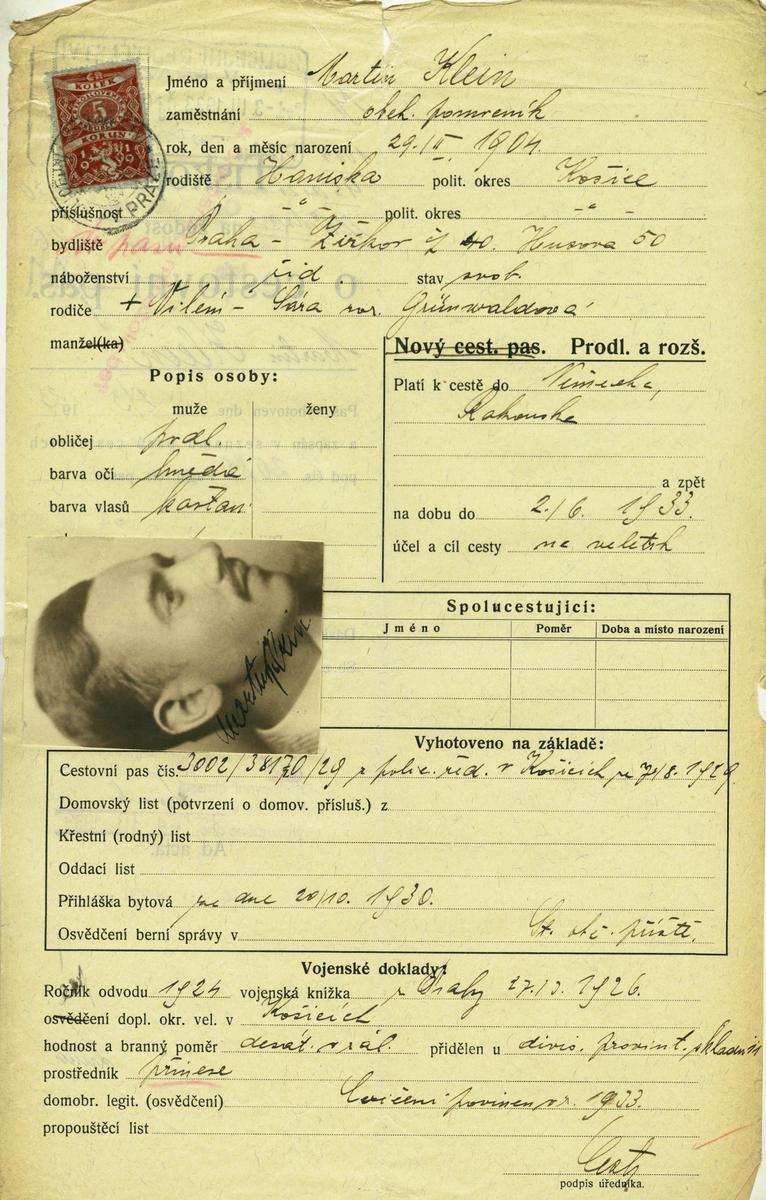 ČR
KOLEK
5
KORUN
1919
PRAZE
Jméno a příjmení Martin Klein
zaměstnání obch. pomocník
rok, den a měsíc narození 29. III. 1904.
rodiště Haniska polit. okres Košice
příslušnost - " - polit. okres - " -
bydliště Praha - Žižkov čj 40. Husova 50
náboženství žid. stav svob.
rodiče + Vilém - Sára roz. Grünwaldová
manžel(ka)
Nový cest. pas. Prodl. a rozš.
Platí k cestě do Německa,
Rakouska
a zpět
na dobu do 2./6. 1933.
účel a cíl cesty na veletrh
Popis osoby:
muže ženy
obličej podl.
barva očí hnědá
barva vlasů kaštan.
Martin Klein
Spolucestující:
Jméno Poměr Doba a místo narození
Vyhotoveno na základě:
Cestovní pas čís. 3002/38170/29 z polic. řed. v Košicích ze 7/8. 1929.
Domovský list (potvrzení o domov. přísluš.) z
Křestní (rodný) list
Oddací list
Přihláška bytová ze dne 20/10. 1930.
Osvědčení berní správy v St. obč. příště.
Vojenské doklady:
Ročník odvodu 1924 vojenská knížka z Prahy 1926.
osvědčení dopl. okr. vel. v Košicích
hodnost a branný poměr desát. v zál. přidělen u divis. proviant.
prostředník přinese
domobr. legit. (osvědčení) Cvičení povinen v r. 1933.
propouštěcí list
podpis úředníka.